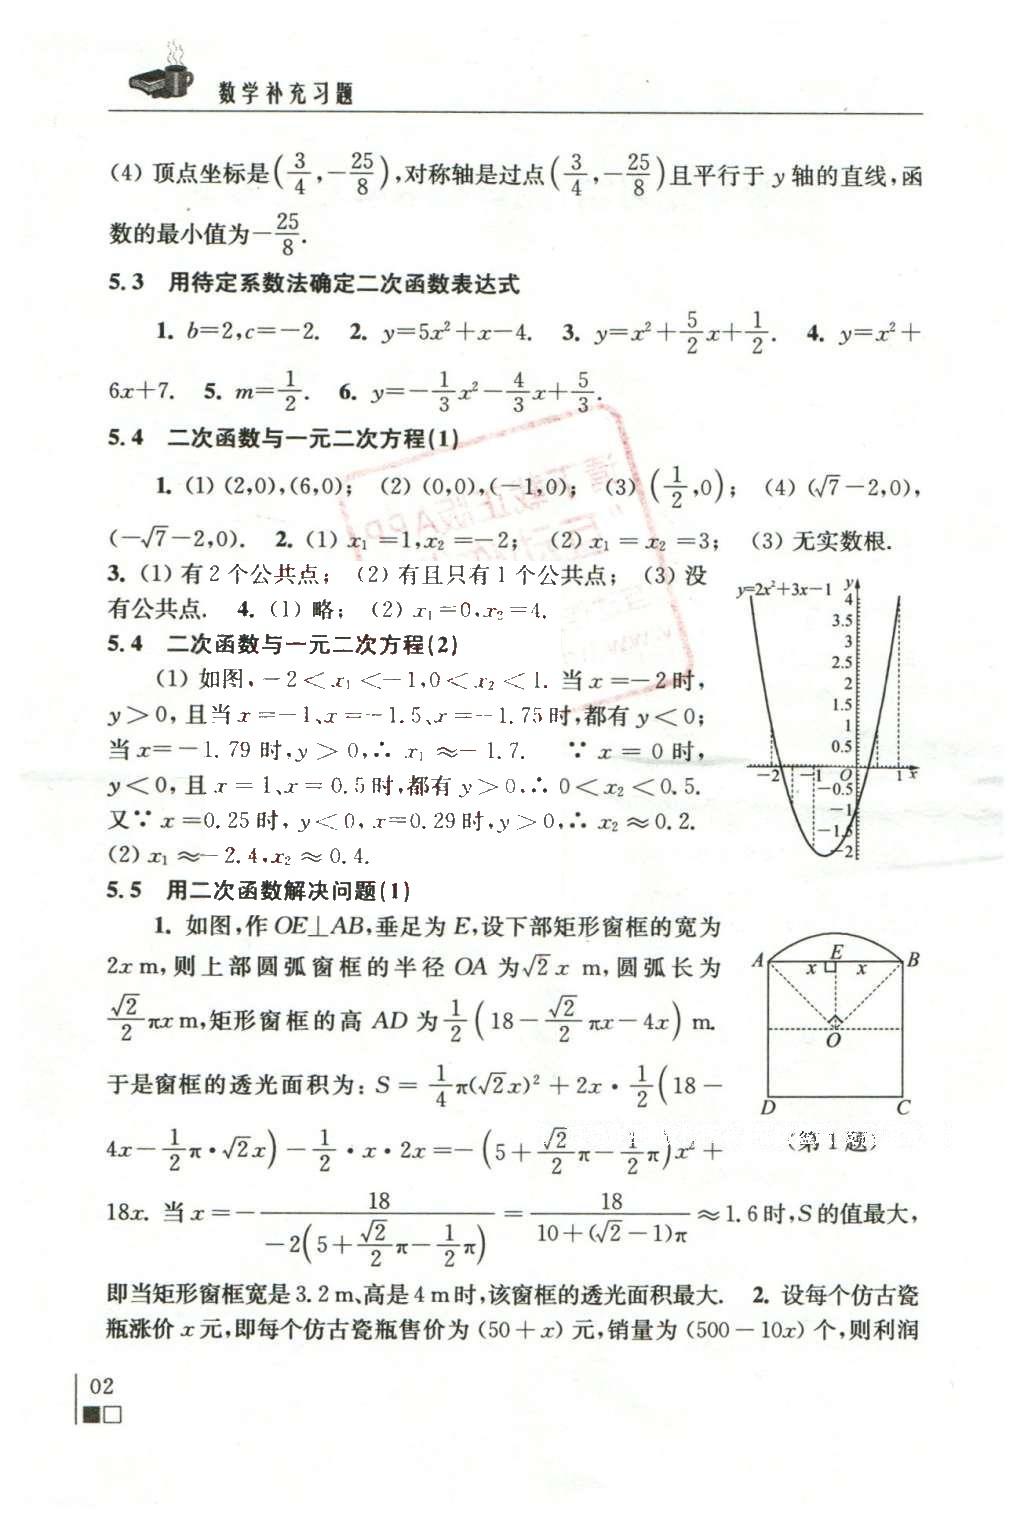 数学补充习题
(4) 顶点坐标是(3/4,-25/8),对称轴是过点(3/4,-25/8)且平行于 y 轴的直线,函
数的最小值为-25/8.
5.3 用待定系数法确定二次函数表达式
1. b=2,c=-2. 2. y=5x²+x-4. 3. y=x²+5/2x+1/2. 4. y=x²+
6x+7. 5. m=1/2. 6. y=-1/3x²-4/3x+5/3.
5.4 二次函数与一元二次方程(1)
1. (1) (2,0),(6,0); (2) (0,0),(-1,0); (3) (1/2,0); (4) (√7-2,0),
(-√7-2,0). 2. (1) x₁=1,x₂=-2; (2) x₁=x₂=3; (3) 无实数根.
3. (1) 有 2 个公共点; (2) 有且只有 1 个公共点; (3) 没
有公共点. 4. (1) 略; (2) x₁=0,x₂=4.
5.4 二次函数与一元二次方程(2)
(1) 如图,-2<x₁<-1,0<x₂<1. 当 x=-2 时,
y>0,且当 x=-1、x=-1.5、x=-1.75 时,都有 y<0;
当 x=-1.79 时,y>0,∴ x₁≈-1.7. ∵ x=0 时,
y<0,且 x=1、x=0.5 时,都有 y>0,∴ 0<x₂<0.5.
又∵ x=0.25 时,y<0,x=0.29 时,y>0,∴ x₂≈0.2.
(2) x₁≈-2.4,x₂≈0.4.
y=2x²+3x-1 y
4
3.5
3
2.5
2
1.5
1
0.5
-2 -1 O 1 x
-0.5
-1
-1.5
-2
5.5 用二次函数解决问题(1)
1. 如图,作 OE⊥AB,垂足为 E,设下部矩形窗框的宽为
2x m,则上部圆弧窗框的半径 OA 为√2x m,圆弧长为
√2/2πx m,矩形窗框的高 AD 为1/2(18-√2/2πx-4x) m.
于是窗框的透光面积为: S=1/4π(√2x)²+2x·1/2(18-
4x-1/2π·√2x)-1/2·x·2x=-(5+√2/2π-1/2π)x²+
18x. 当 x=-18/(-2(5+√2/2π-1/2π))=18/(10+(√2-1)π)≈1.6 时,S 的值最大,
即当矩形窗框宽是 3.2 m、高是 4 m 时,该窗框的透光面积最大. 2. 设每个仿古瓷
瓶涨价 x 元,即每个仿古瓷瓶售价为 (50+x) 元,销量为 (500-10x) 个,则利润
A E B
x x
O
D C
(第 1 题)
02